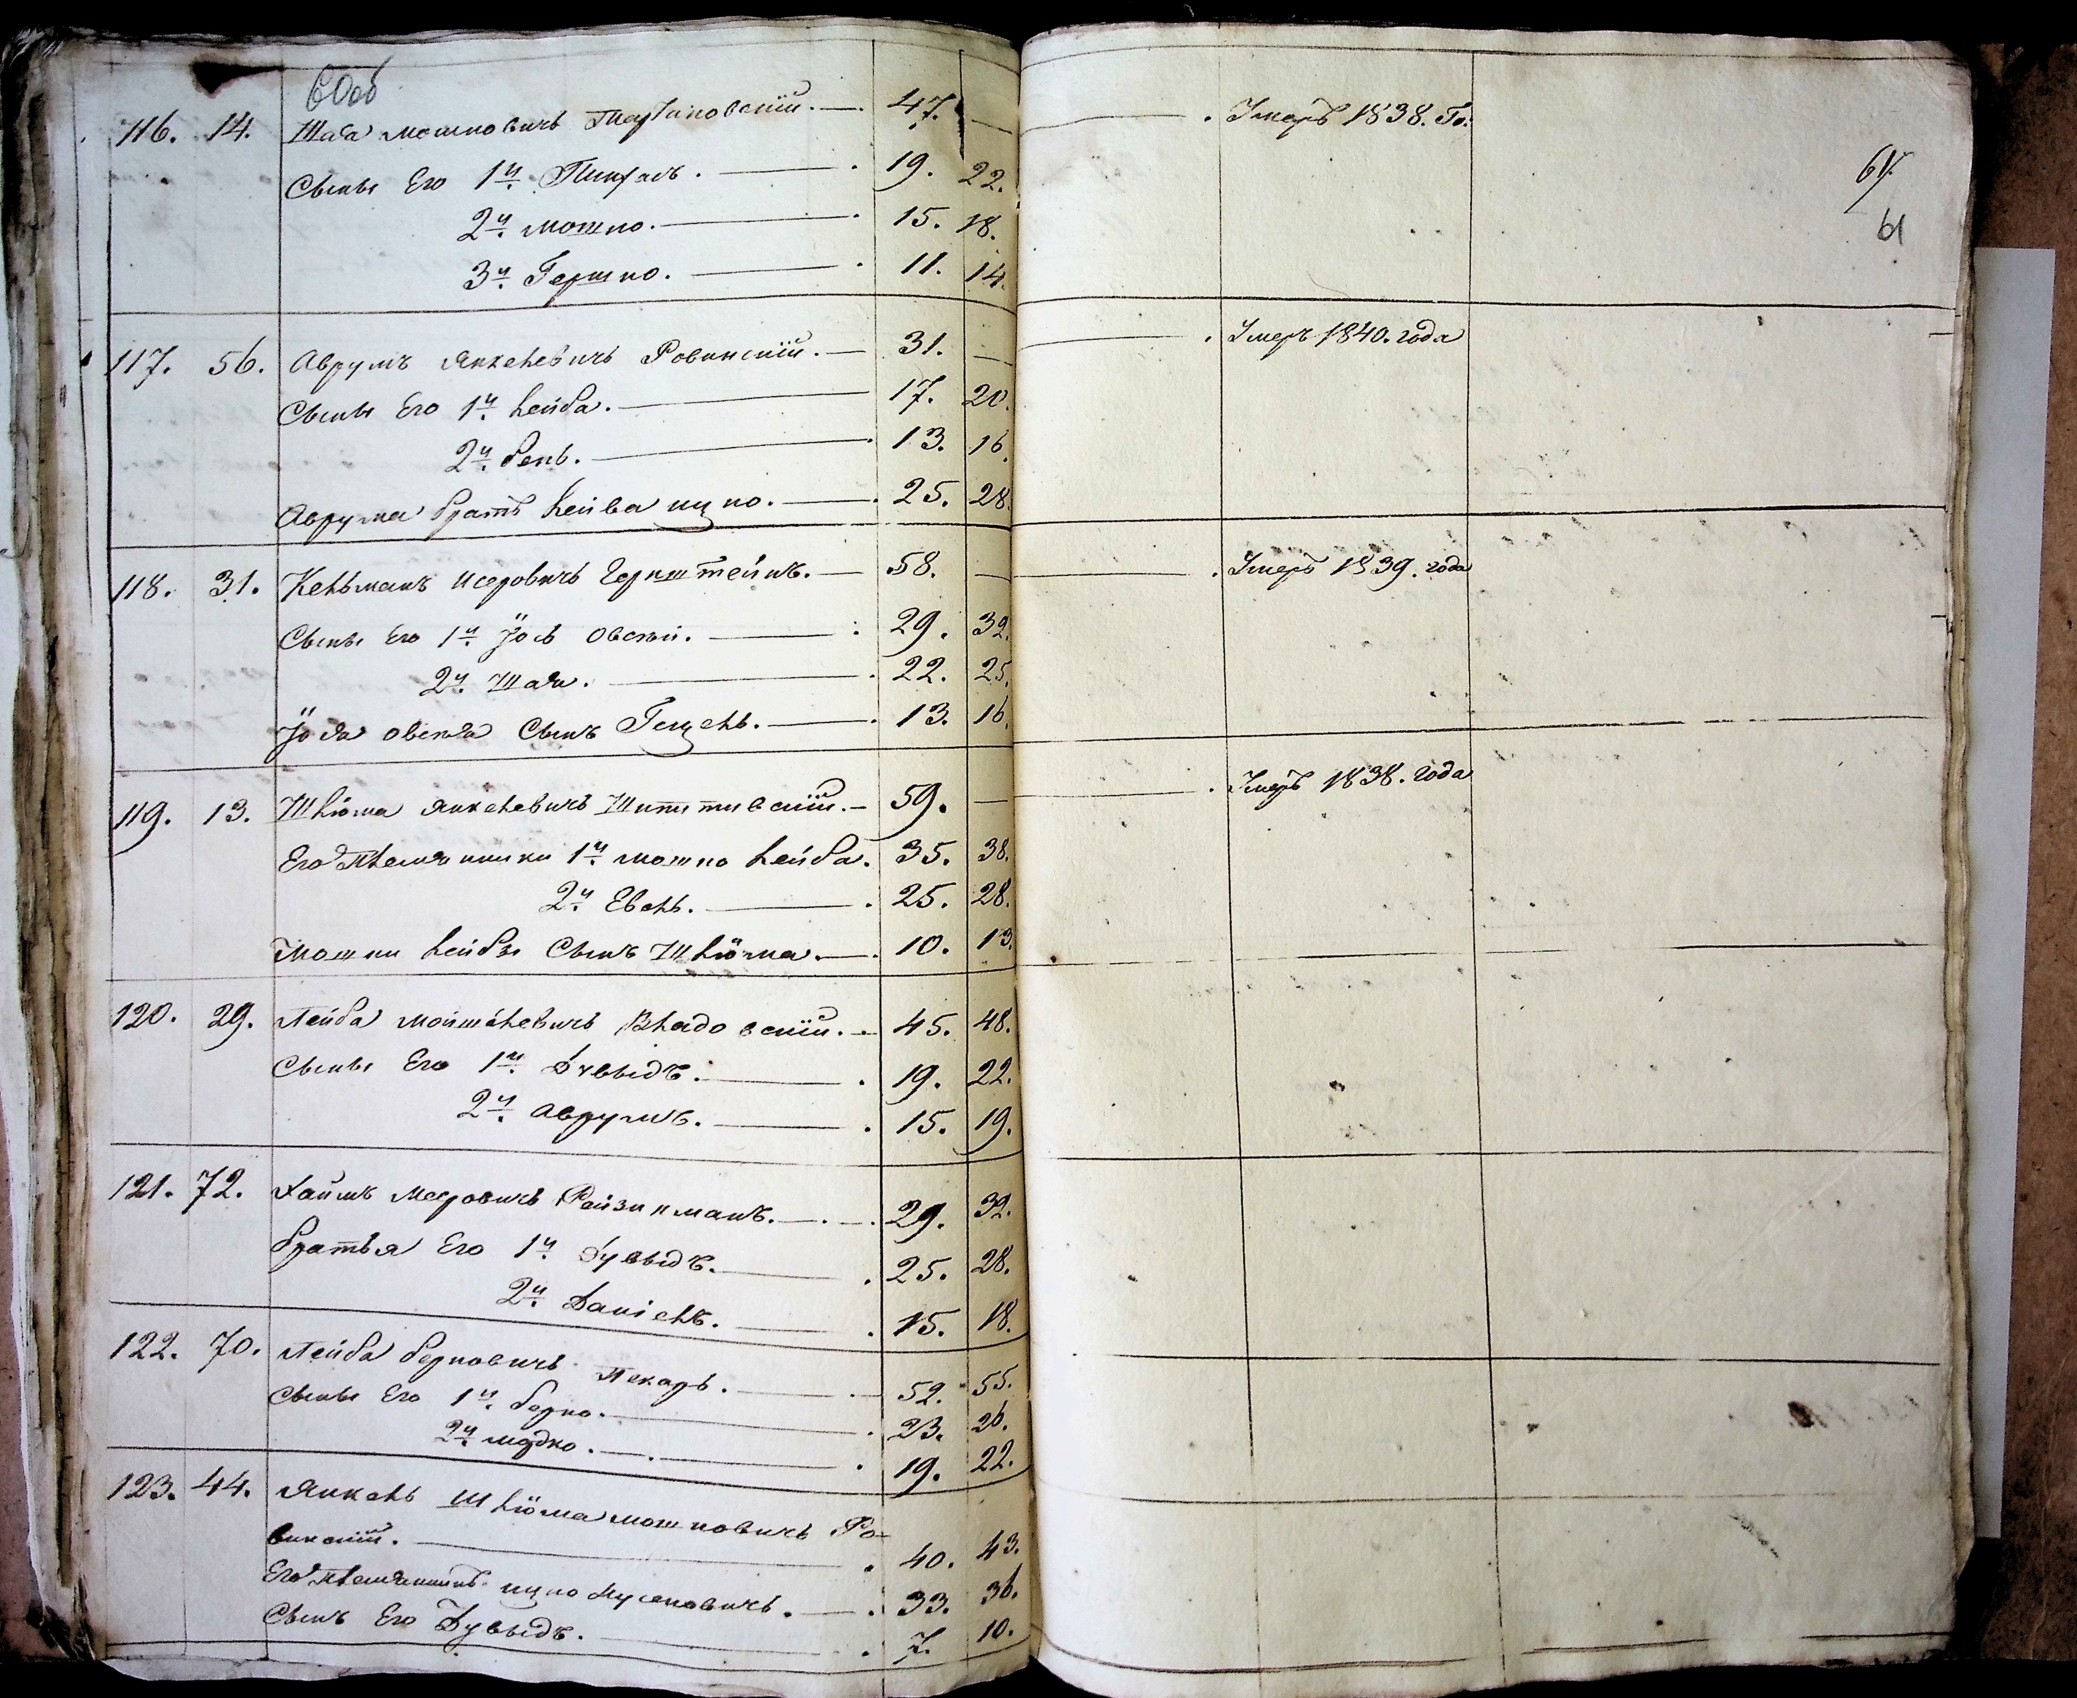 60об
116. 14. Шая Мошковичъ 47. — Умеръ 1838. Го.
61.
Сыны Его 1й. 19. 22.
2й. Мошко. 15. 18.
61
3й. Гершко. 11. 14.
117. 56. Аврумъ Янкелевичъ Ровинскій. 31. — Умеръ 1840. года
Сыны Его 1й. Лейба. 17. 20.
2й. Бень. 13. 16.
Аврума братъ Лейва Ицко. 25. 28.
118. 31. Кельманъ Исеровичъ Бернштейнъ. 58. — Умеръ 1839. года
Сыны Его 1й Іось Овсей. 29. 32.
2й. Шая. 22. 25.
Іося Овсея Сынъ Гецель. 13. 16.
119. 13. Шлёма Янкелевичъ 59. — Умеръ 1838. года
Его Племянники 1й. Мошко Лейба. 35. 38.
2й Евель. 25. 28.
Мошки Лейбы Сынъ Шлёма. 10. 13.
120. 29. Лейба Мойшелевичъ Владовскій. 45. 48.
Сыны Его 1й. Дувыдъ. 19. 22.
2й. Аврумъ. 15. 19.
121. 72. Хаимъ Меровичъ Ройзинманъ. 29. 32.
Братья Его 1й. Дувыдъ. 25. 28.
2й. Даніелъ. 15. 18.
122. 70. Лейба Берковичъ Пекарь. 52. 55.
Сыны Его 1й. Берко. 23. 26.
2й Мордко. 19. 22.
123. 44. Янкель Шлёма Мошковичъ Ро-
винскій. 40. 43.
Его Племянникъ Ицко Нусеновичъ. 33. 36.
Сынъ Его Дувыдъ. 7. 10.